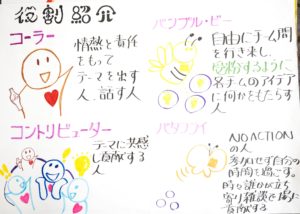 役割紹介
コーラー
情熱と責任
をもって
テーマを出す
人、話す人
バンブル・ビー
自由にチーム間
を行き来し、
受粉するように
各チームのアイデア
に何かをもたらす
人
コントリビューター
テーマに共感
し貢献する
人
バタフライ
NO ACTION
の人
参加せず自分の
時間を過ごす。
時々誰かが立ち
寄り雑談を
貢献する